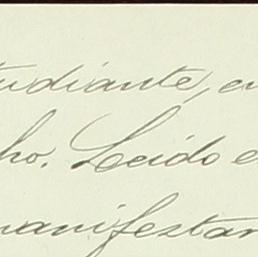 tudiante, en
ho. Leido e
manifestan